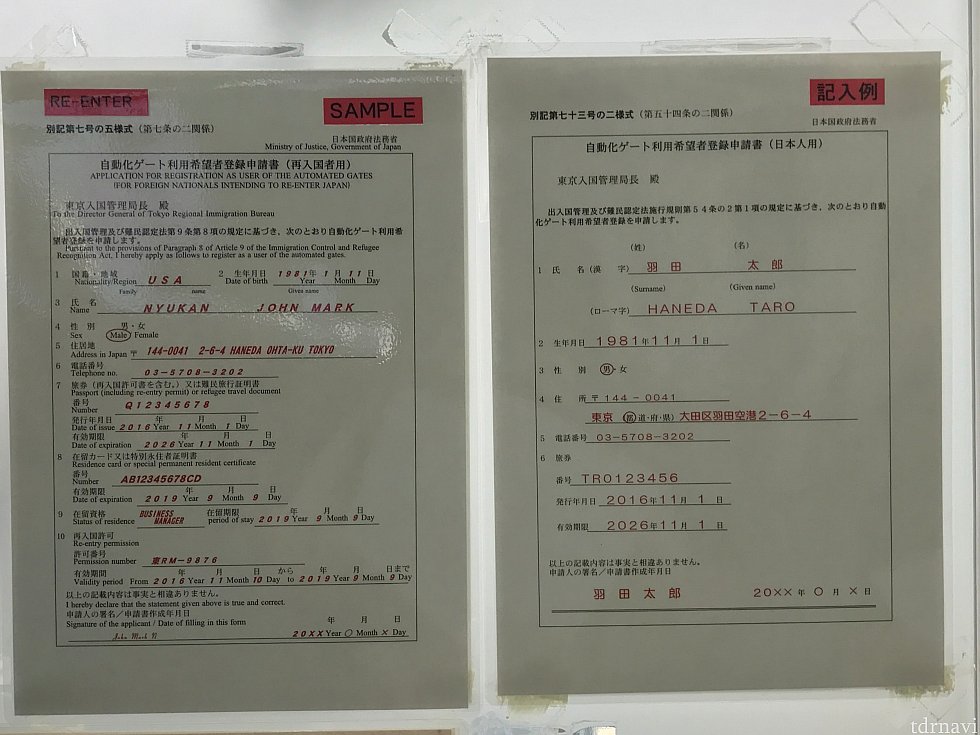 RE-ENTER
SAMPLE
別記第七号の五様式（第七条の二関係）
日本国政府法務省
Ministry of Justice, Government of Japan
自動化ゲート利用希望者登録申請書（再入国者用）
APPLICATION FOR REGISTRATION AS USER OF THE AUTOMATED GATES
(FOR FOREIGN NATIONALS INTENDING TO RE-ENTER JAPAN)
東京入国管理局長 殿
To the Director General of Tokyo Regional Immigration Bureau
出入国管理及び難民認定法第9条第8項の規定に基づき，次のとおり自動化ゲート利用希
望者登録を申請します。
Pursuant to the provisions of Paragraph 8 of Article 9 of the Immigration Control and Refugee
Recognition Act, I hereby apply as follows to register as a user of the automated gates.
1 国籍・地域 USA 2 生年月日 1981年 1月 11日
Nationality/Region Date of birth Year Month Day
Family name Given name
3 氏名 NYUKAN JOHN MARK
Name
4 性別 男・女
Sex Male Female
5 住居地
Address in Japan 〒 144-0041 2-6-4 HANEDA OHTA-KU TOKYO
6 電話番号
Telephone no. 03-5708-3202
7 旅券（再入国許可書を含む。）又は難民旅行証明書
Passport (including re-entry permit) or refugee travel document
番号
Number Q12345678
発行年月日 年 月 日
Date of issue 2016 Year 11 Month 1 Day
有効期限 年 月 日
Date of expiration 2026 Year 11 Month 1 Day
8 在留カード又は特別永住者証明書
Residence card or special permanent resident certificate
番号
Number AB12345678CD
有効期限 年 月 日
Date of expiration 2019 Year 9 Month 9 Day
9 在留資格 BUSINESS MANAGER 在留期限 年 月 日
Status of residence period of stay 2019 Year 9 Month 9 Day
10 再入国許可
Re-entry permission
許可番号
Permission number 東RM-9876
有効期間 年 月 日から 年 月 日まで
Validity period From 2016 Year 11 Month 10 Day to 2019 Year 9 Month 9 Day
以上の記載内容は事実と相違ありません。
I hereby declare that the statement given above is true and correct.
申請人の署名／申請書作成年月日
Signature of the applicant / Date of filling in this form 年 月 日
20XX Year ○ Month × Day
記入例
別記第七十三号の二様式（第五十四条の二関係）
日本国政府法務省
自動化ゲート利用希望者登録申請書（日本人用）
東京入国管理局長 殿
出入国管理及び難民認定法施行規則第54条の2第1項の規定に基づき，次のとおり自動
化ゲート利用希望者登録を申請します。
（姓） （名）
1 氏 名（漢 字） 羽田 太郎
（Surname） （Given name）
（ローマ字） HANEDA TARO
2 生年月日 1981年11月 1日
3 性 別 男・女
4 住 所 〒144-0041
東京 都・道・府・県） 大田区羽田空港2-6-4
5 電話番号 03-5708-3202
6 旅券
番号 TR0123456
発行年月日 2016年11月 1日
有効期限 2026年11月 1日
以上の記載内容は事実と相違ありません。
申請人の署名／申請書作成年月日
羽田太郎 20××年 ○月 ×日
tdrnavi